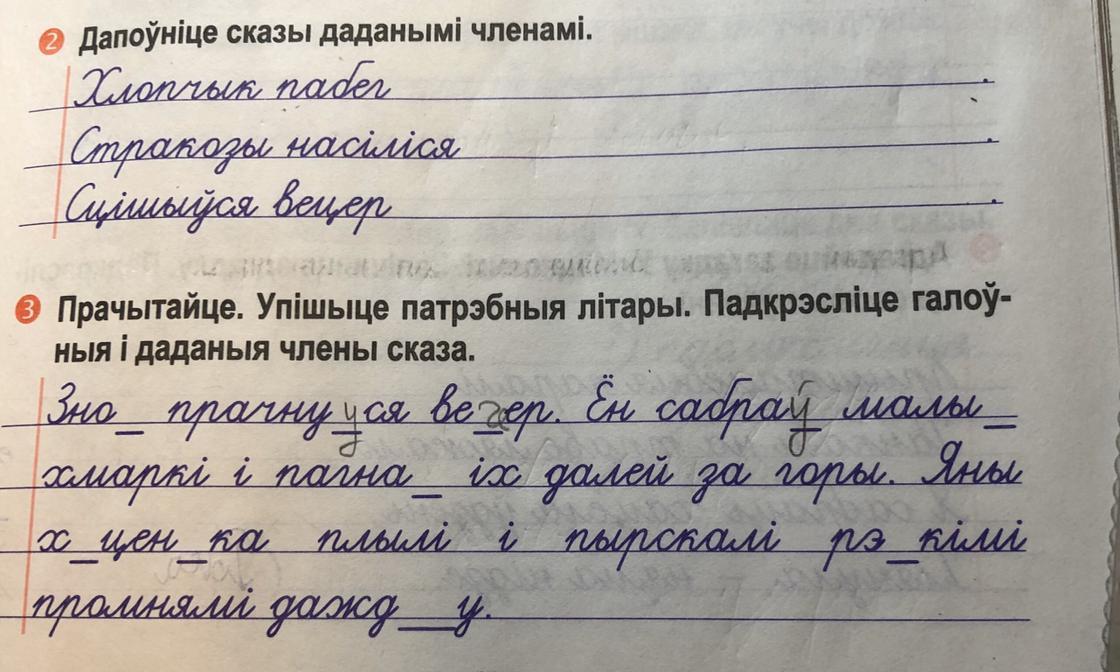 2 Дапоўніце сказы даданымі членамі.
Хлопчык пабег .
Стракозы насіліся .
Сцішыўся вецер .
3 Прачытайце. Упішыце патрэбныя літары. Падкрэсліце галоў-
ныя і даданыя члены сказа.
Зно_ прачнууся вечер. Ён сабраў малы_
хмаркі і пагна_ іх далей за горы. Яны
х_цен_ка плылі і пырскалі рэ_кімі
промнямі дажд__у.